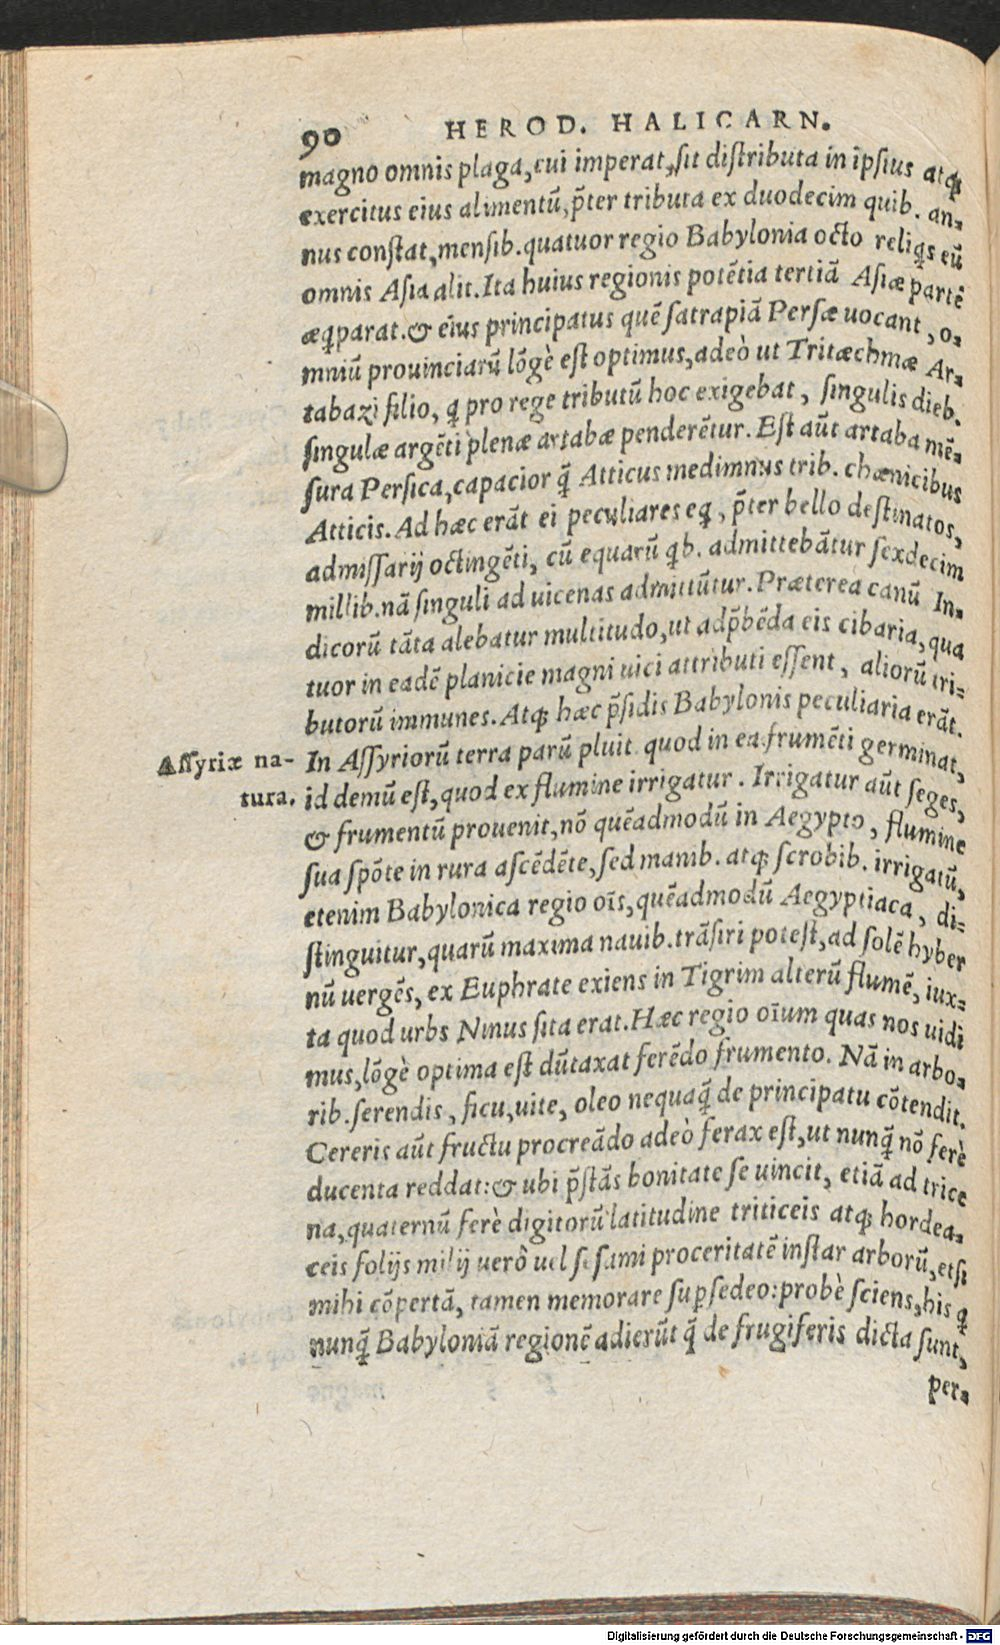 90 HEROD. HALICARN.
magno omnis plaga, cui imperat, ſit diſtributa in ipſius atq;
exercitus eius alimentũ, p̃ter tributa ex duodecim quib. an-
nus conſtat, menſib. quatuor regio Babylonia octo reliqs eũ
omnis Aſia alit. Ita huius regionis potẽtia tertiã Aſiæ partẽ
æq̃parat. & eius principatus quẽ ſatrapiã Perſæ uocant, o-
mniũ prouinciarũ lõgè eſt optimus, adeò ut Tritæchmæ Ar-
tabazi filio, q pro rege tributũ hoc exigebat, ſingulis dieb.
ſingulæ argẽti plenæ artabæ penderẽtur. Eſt aũt artaba mẽ-
ſura Perſica, capacior q̃ Atticus medimnus trib. chœnicibus
Atticis. Ad hæc erãt ei peculiares eq, p̃ter bello deſtinatos,
admiſſarij octingẽti, cũ equarũ qb. admittebãtur ſexdecim
millib. nã ſinguli ad uicenas admittũtur. Præterea canũ In-
dicorũ tãta alebatur multitudo, ut adp̃bẽda eis cibaria, qua
tuor in eadẽ planicie magni uici attributi eſſent, aliorũ tri-
butorũ immunes. Atq; hæc p̃ſidis Babylonis peculiaria erãt.
Aſſyriæ na-
tura.
In Aſſyriorũ terra parũ pluit quod in ea frumẽti germinat,
id demũ eſt, quod ex flumine irrigatur. Irrigatur aũt ſeges,
& frumentũ prouenit, nõ quẽadmodũ in Aegypto, flumine
ſua ſpõte in rura aſcẽdẽte, ſed manib. atq; ſcrobib. irrigatũ,
etenim Babylonica regio oĩs, quẽadmodũ Aegyptiaca, di-
ſtinguitur, quarũ maxima nauib. trãſiri poteſt, ad ſolẽ hyber
nũ uergẽs, ex Euphrate exiens in Tigrim alterũ flumẽ, iux-
ta quod urbs Ninus ſita erat. Hæc regio oĩum quas nos uidi
mus, lõgè optima eſt dũtaxat ferẽdo frumento. Nã in arbo-
rib. ſerendis, ficu, uite, oleo nequaq̃ de principatu cõtendit.
Cereris aũt fructu procreãdo adeò ferax eſt, ut nunq̃ nõ ferè
ducenta reddat: & ubi p̃ſtãs bonitate ſe uincit, etiã ad trice
na, quaternũ ferè digitorũ latitudine triticeis atq; hordea-
ceis folijs milij uerò uel ſeſami proceritatẽ inſtar arborũ, etſi
mihi cõpertã, tamen memorare ſupſedeo: probè ſciens, his q
nunq̃ Babyloniã regionẽ adierũt q̃ de frugiferis dicta ſunt,
per-
Digitalisierung gefördert durch die Deutsche Forschungsgemeinschaft - DFG